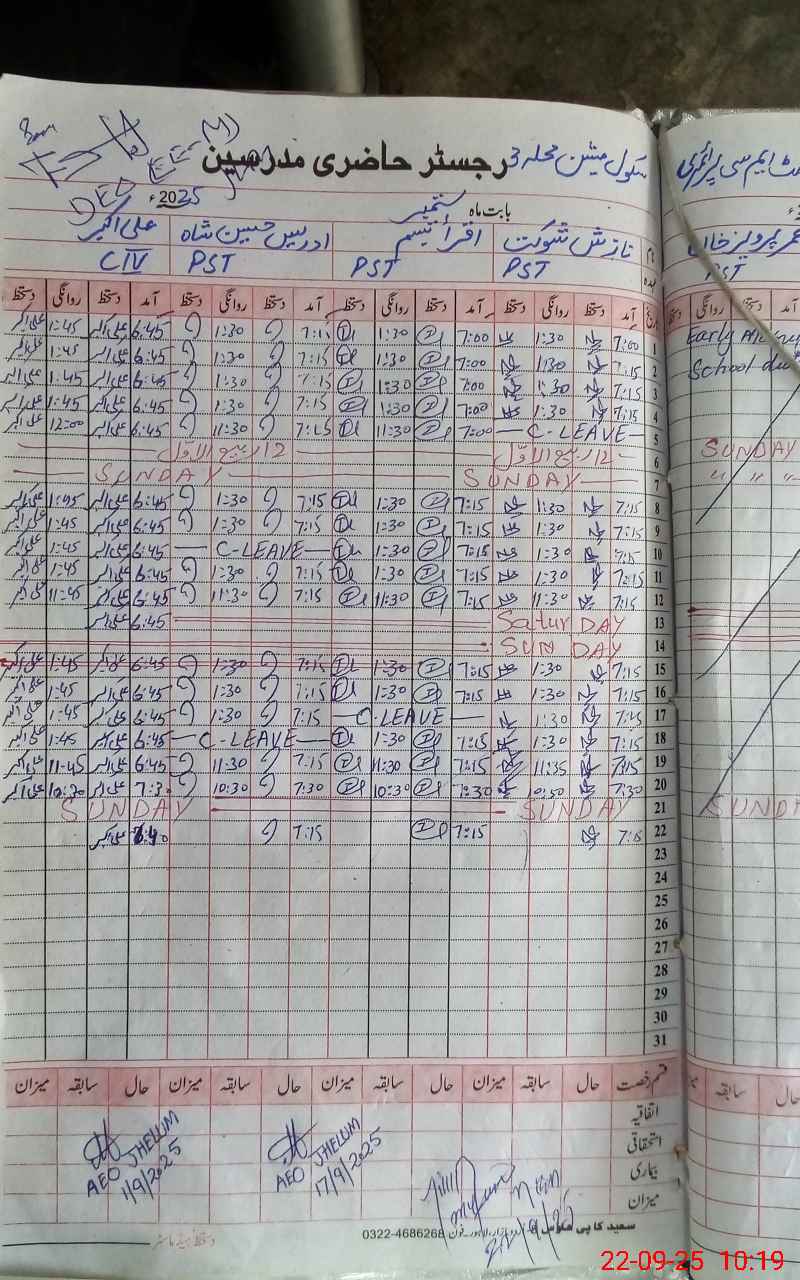 رجسٹر حاضری مدرسین سکول مشن محلہ 3
DED EE-M JHL
بابت ماہ ستمبر 2025ء
نام نازش شوکت اقرأ تبسم ادریس حسین شاہ علی اکبر
عہدہ PST PST PST CIV
تاریخ آمد دستخط روانگی دستخط آمد دستخط روانگی دستخط آمد دستخط روانگی دستخط آمد دستخط روانگی دستخط
1 7:00 1:30 7:00 1:30 7:15 1:30 6:45 علی اکبر 1:45 علی اکبر
2 7:15 1:30 7:00 1:30 7:15 1:30 6:45 علی اکبر 1:45 علی اکبر
3 7:15 1:30 7:00 1:30 7:15 1:30 6:45 علی اکبر 1:45 علی اکبر
4 7:15 1:30 7:00 1:30 7:15 1:30 6:45 علی اکبر 1:45 علی اکبر
5 C-LEAVE 7:00 11:30 7:15 11:30 6:45 علی اکبر 12:00 علی اکبر
6 12 ربیع الاوّل 12 ربیع الاوّل
7 SUNDAY SUNDAY
8 7:15 1:30 7:15 1:30 7:15 1:30 6:45 علی اکبر 1:45 علی اکبر
9 7:15 1:30 7:15 1:30 7:15 1:30 6:45 علی اکبر 1:45 علی اکبر
10 7:15 1:30 7:15 1:30 C-LEAVE 6:45 علی اکبر 1:45 علی اکبر
11 7:15 1:30 7:15 1:30 7:15 1:30 6:45 علی اکبر 1:45 علی اکبر
12 7:15 11:30 7:15 11:30 7:15 11:30 6:45 علی اکبر 11:45 علی اکبر
13 Satur DAY 6:45 علی اکبر
14 SUNDAY
15 7:15 1:30 7:15 1:30 7:15 1:30 6:45 علی اکبر 1:45 علی اکبر
16 7:15 1:30 7:15 1:30 7:15 1:30 6:45 علی اکبر 1:45 علی اکبر
17 7:15 1:30 C-LEAVE 7:15 1:30 6:45 علی اکبر 1:45 علی اکبر
18 7:15 1:30 7:15 1:30 C-LEAVE 6:45 علی اکبر 1:45 علی اکبر
19 7:15 11:35 7:15 11:30 7:15 11:30 6:45 علی اکبر 11:45 علی اکبر
20 7:30 10:30 7:30 10:30 7:30 10:30 7:30 علی اکبر 10:30 علی اکبر
21 SUNDAY SUNDAY
22 7:15 7:15 7:15 علی اکبر
23
24
25
26
27
28
29
30
31
قسم رخصت حال سابقہ میزان حال سابقہ میزان حال سابقہ میزان حال سابقہ میزان
اتفاقیہ
استحقاقی
بیماری
میزان
AEO JHELUM
1/9/2025
AEO JHELUM
17/9/2025
سعید کاپی ہاؤس اردو بازار، لاہور۔ فون 0322-4686268
دستخط ہیڈ ماسٹر
ایم سی پرائمری
عمر پرویز خان
PST
آمد دستخط روانگی دستخط
Early
School
SUNDAY
" " "
SUNDAY
حال سابقہ میزان
22-09-25 10:19